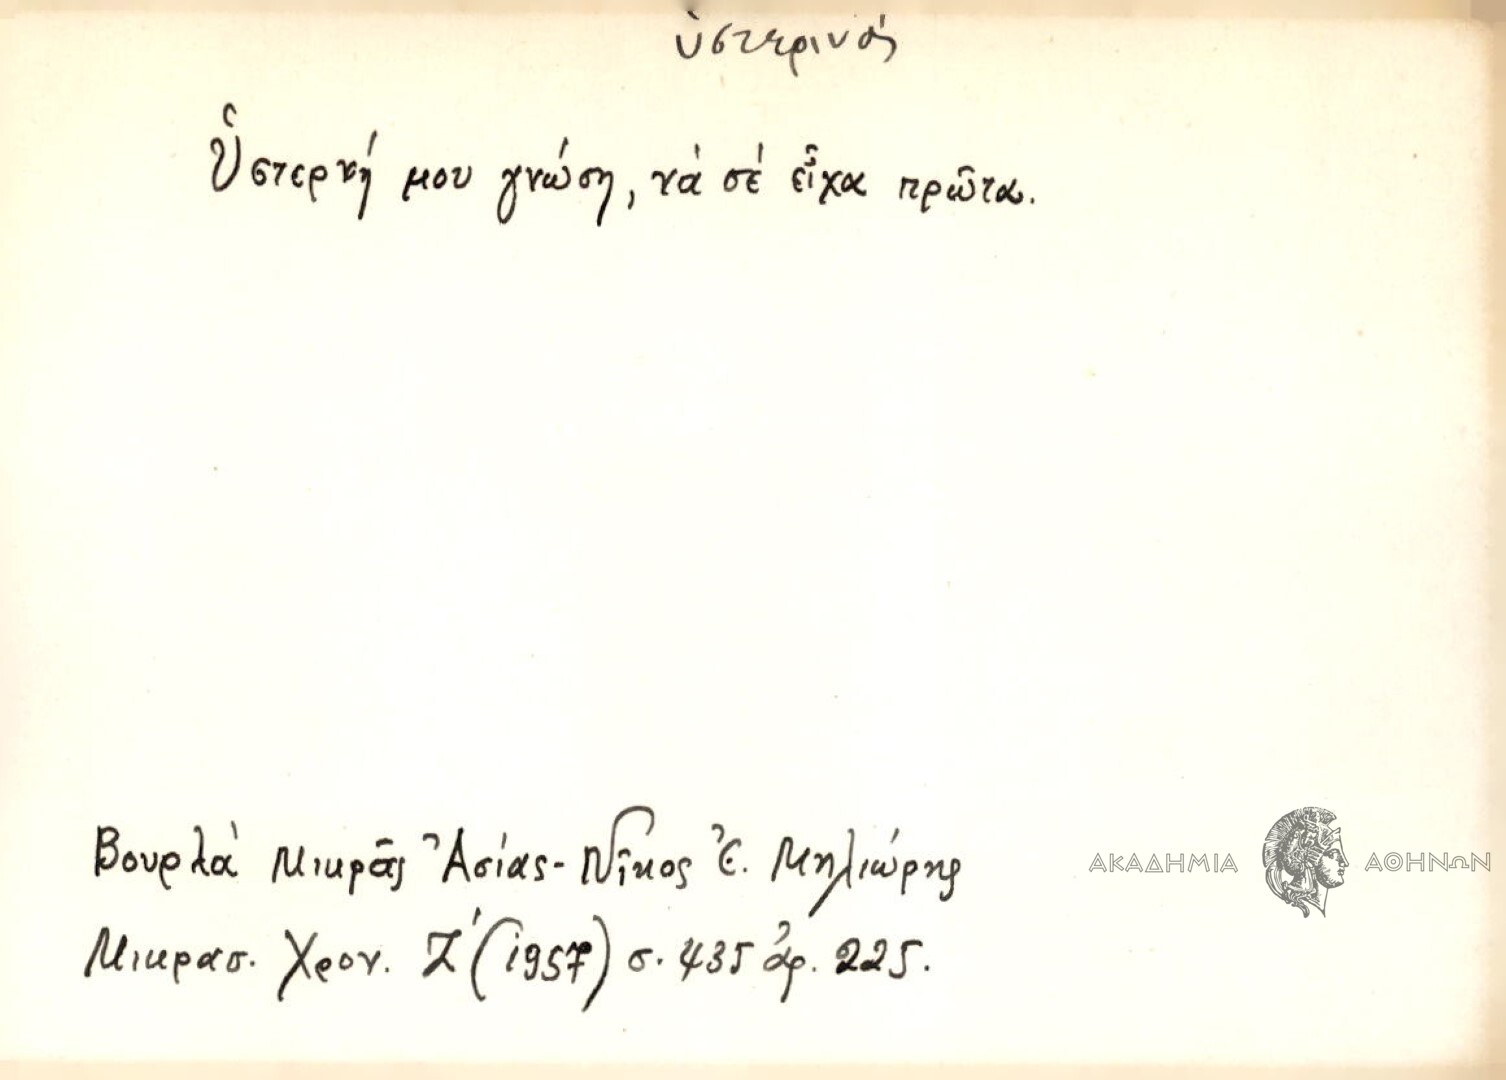 ὑστερινός
Ὑστερνή μου γνώση, νά σέ εἶχα πρῶτα.
Βουρλά Μικρᾶς Ἀσίας - Νῖκος Ἐ. Μηλιώρης
ΑΚΑΔΗΜΙΑ ΑΘΗΝΩΝ
Μικρασ. Χρον. Ζ΄ (1957) σ. 435 ἀρ. 225.